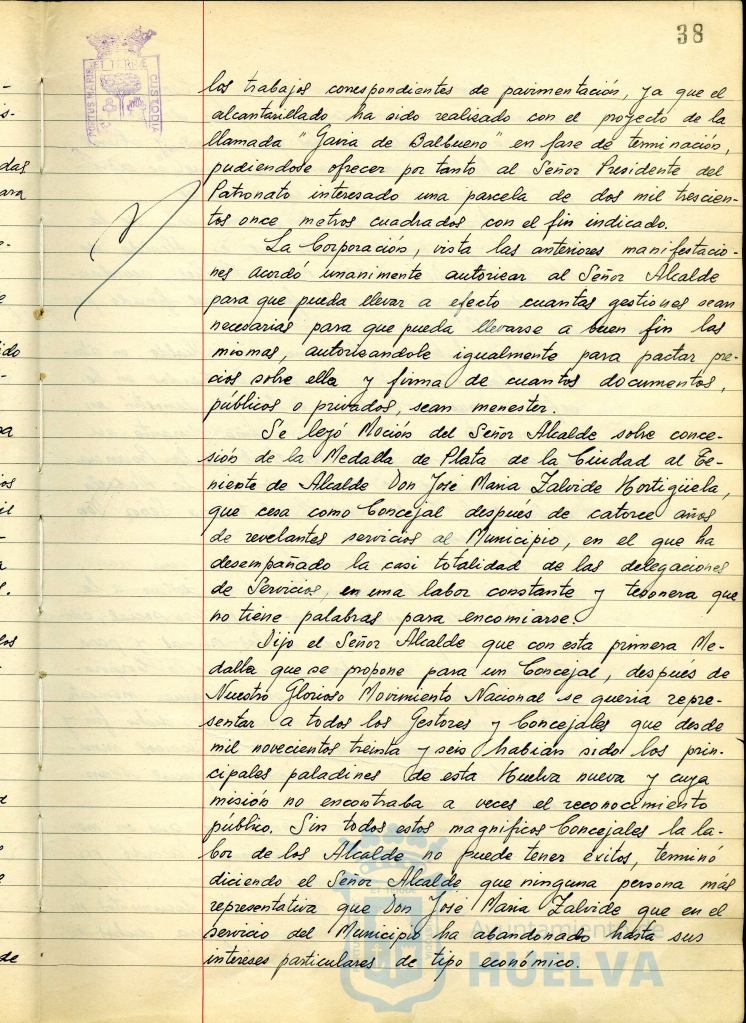 38
PORTUS MARIS
ET TERRE
CUSTODIA
los trabajos correspondientes de pavimentación, ya que el
alcantarillado ha sido realisado con el proyecto de la
llamada "Gavia de Balbueno" en fase de terminación,
pudiendose ofrecer por tanto al Señor Presidente del
Patronato interesado una parcela de dos mil trescien-
tos once metros cuadrados con el fin indicado.
La Corporación, vista las anteriores manifestacio-
nes acordó unanimente autorizar al Señor Alcalde
para que pueda llevar a efecto cuantas gestiones sean
necesarias para que pueda llevarse a buen fin las
mismas, autorisandole igualmente para pactar pre-
cios sobre ella y firma de cuantos documentos,
públicos o privados, sean menester.
Se leyó Moción del Señor Alcalde sobre conce-
sión de la Medalla de Plata de la Ciudad al Te-
niente de Alcalde Don José Maria Zalvide Hortigüela,
que cesa como Concejal después de catorce años
de revelantes servicios al Municipio, en el que ha
desempañado la casi totalidad de las delegaciones
de Servicios, en una labor constante y tesonera que
no tiene palabras para encomiarse.
Dijo el Señor Alcalde que con esta primera Me-
dalla que se propone para un Concejal, después de
Nuestro Glorioso Movimiento Nacional se queria repre-
sentar a todos los Gestores y Concejales que desde
mil novecientos treinta y seis habian sido los prin-
cipales paladines de esta Huelva nueva y cuya
misión no encontraba a veces el reconocimiento
público. Sin todos estos magnificos Concejales la la-
bor de los Alcalde no puede tener éxitos, terminó
diciendo el Señor Alcalde que ninguna persona más
representativa que Don José Maria Zalvide que en el
servicio del Municipio ha abandonado hasta sus
intereses particulares de tipo económico.
Ayuntamiento de
HUELVA